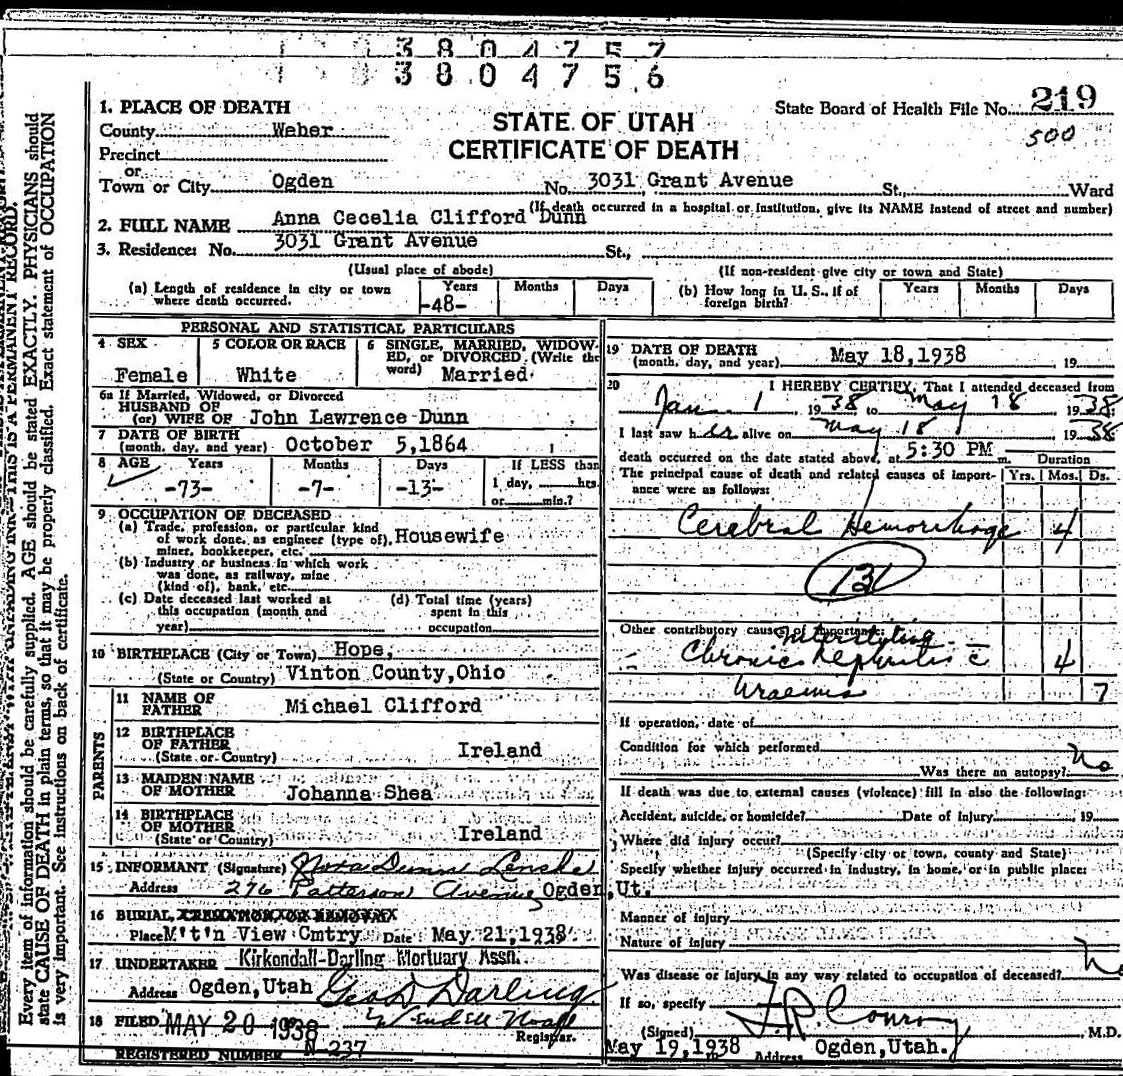 3804757
3804756
1. PLACE OF DEATH
State Board of Health File No. 219
500
County Weber
STATE OF UTAH
CERTIFICATE OF DEATH
Precinct
or
Town or City Ogden No. 3031 Grant Avenue St. Ward
(If death occurred in a hospital or institution, give its NAME instead of street and number)
2. FULL NAME Anna Cecelia Clifford Dunn
3. Residence: No. 3031 Grant Avenue St.,
(Usual place of abode) (If non-resident give city or town and State)
(a) Length of residence in city or town where death occurred. Years -48- Months Days
(b) How long in U. S., if of foreign birth? Years Months Days
PERSONAL AND STATISTICAL PARTICULARS
4 SEX Female
5 COLOR OR RACE White
6 SINGLE, MARRIED, WIDOWED, or DIVORCED. (Write the word) Married
6a If Married, Widowed, or Divorced
HUSBAND OF
(or) WIFE OF John Lawrence Dunn
7 DATE OF BIRTH
(month, day, and year) October 5,1864
8 AGE Years -73- Months -7- Days -13- If LESS than 1 day, hrs. or min.?
9 OCCUPATION OF DECEASED
(a) Trade, profession, or particular kind
of work done, as engineer (type of), Housewife
miner, bookkeeper, etc.
(b) Industry or business in which work
was done, as railway, mine
(kind of), bank, etc.
(c) Date deceased last worked at
this occupation (month and
year)
(d) Total time (years)
spent in this
occupation
10 BIRTHPLACE (City or Town) Hope,
(State or Country) Vinton County,Ohio
PARENTS
11 NAME OF
FATHER Michael Clifford
12 BIRTHPLACE
OF FATHER
(State or Country) Ireland
13 MAIDEN NAME
OF MOTHER Johanna Shea
14 BIRTHPLACE
OF MOTHER
(State or Country) Ireland
15 INFORMANT (Signature) Nora Dunn
Address 276 Patterson Avenue Ogden,Ut.
16 BURIAL, CREMATION OR REMOVAL
Place M't'n View Cmtry Date May 21,1938
17 UNDERTAKER Kirkendall-Darling Mortuary Assn.
Address Ogden,Utah Geo D. Darling
18 FILED MAY 20 1938 Wendell Noall
Registrar.
REGISTERED NUMBER N-237
19 DATE OF DEATH
(month, day, and year) May 18,1938 19
20 I HEREBY CERTIFY, That I attended deceased from
Jan 1, 1938 to May 18 1938
I last saw her alive on May 18 1938
death occurred on the date stated above, at 5:30 PM m. Duration
The principal cause of death and related causes of importance were as follows: Yrs. Mos. Ds.
Cerebral Hemorrhage 4
131
Other contributory causes of importance:
Interstitial
Chronic Nephritis c 4
Uraemia 7
If operation, date of
Condition for which performed
Was there an autopsy? No
If death was due to external causes (violence) fill in also the following:
Accident, suicide, or homicide? Date of Injury 19
Where did injury occur?
(Specify city or town, county and State)
Specify whether injury occurred in industry, in home, or in public place:
Manner of injury
Nature of Injury
Was disease or injury in any way related to occupation of deceased? No
If so, specify
(Signed) F.R. Conroy M.D.
May 19,1938 Address Ogden,Utah.
Every item of information should be carefully supplied. AGE should be stated EXACTLY. PHYSICIANS should
state CAUSE OF DEATH in plain terms, so that it may be properly classified. Exact statement of OCCUPATION
is very important. See instructions on back of certificate.